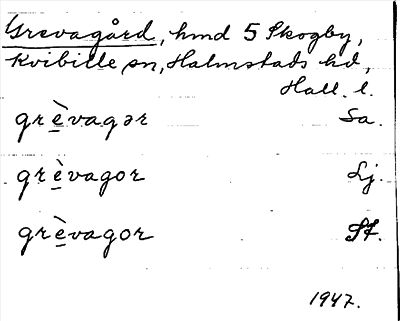 Grevagård, hmd 5 Skogby,
Kvibille sn, Halmstads hd,
Hall. l.
grèvagər Sa.
grèvagor Lj.
grèvagor St.
1947.